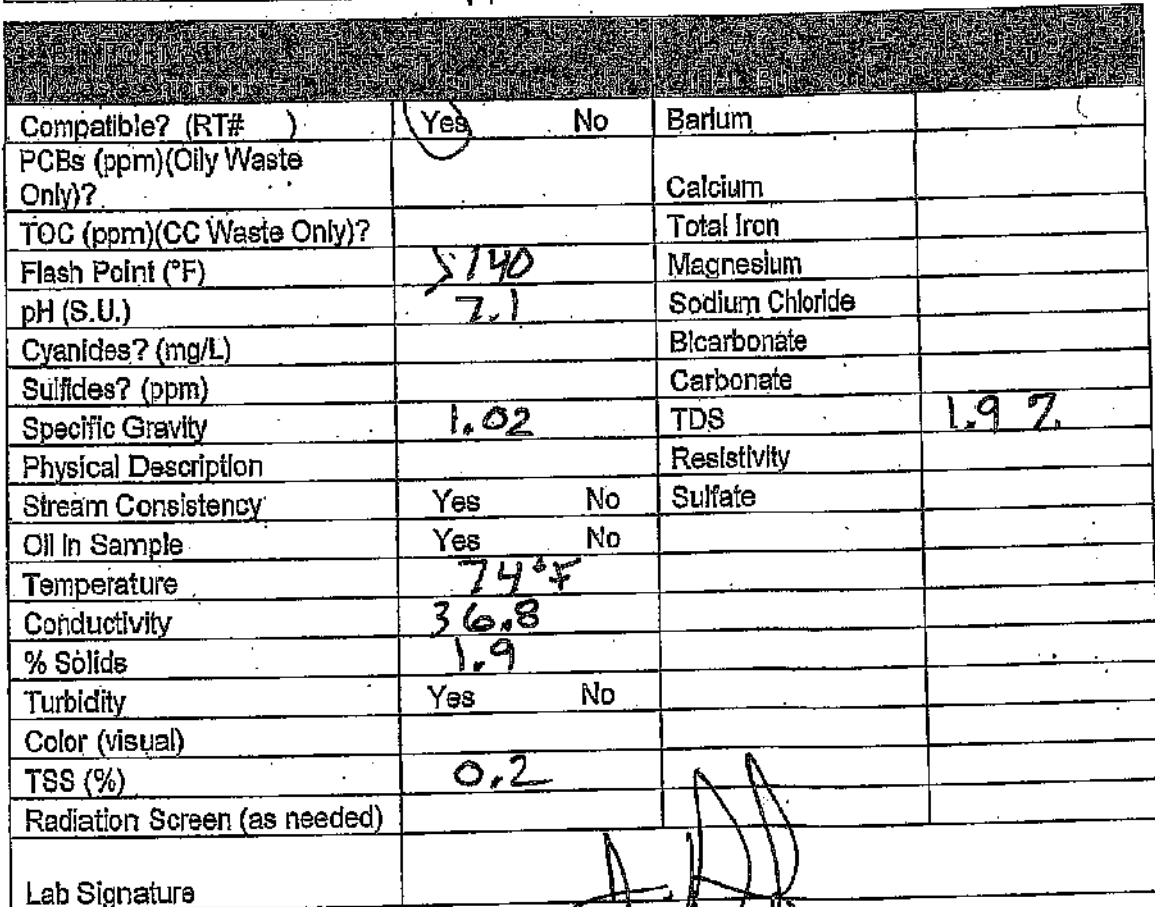 LAB INFORMATION
Compatible? (RT# ) Yes No Barium
PCBs (ppm)(Oily Waste
Only)? Calcium
TOC (ppm)(CC Waste Only)? Total Iron
Flash Point (°F) >140 Magnesium
pH (S.U.) 7.1 Sodium Chloride
Cyanides? (mg/L) Bicarbonate
Sulfides? (ppm) Carbonate
Specific Gravity 1.02 TDS 1.9 %
Physical Description Resistivity
Stream Consistency Yes No Sulfate
Oil in Sample Yes No
Temperature 74°F
Conductivity 36.8
% Solids 1.9
Turbidity Yes No
Color (visual)
TSS (%) 0.2
Radiation Screen (as needed)
Lab Signature